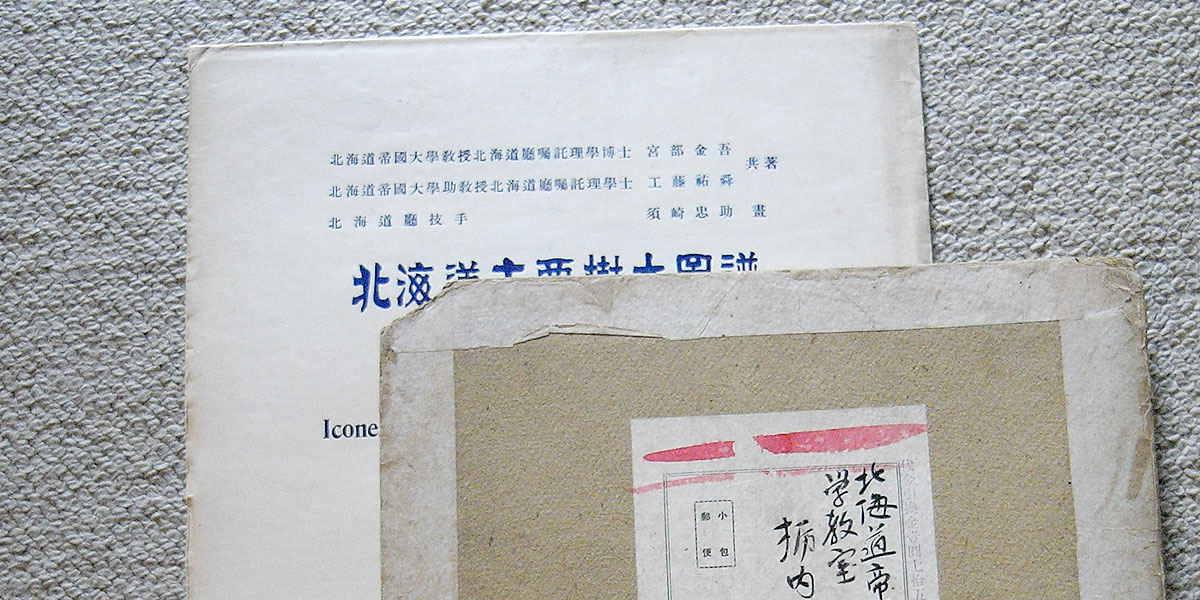 北海道帝國大學教授北海道廳囑託理學博士 宮部金吾
北海道帝國大學助教授北海道廳囑託理學士 工藤祐舜
共著
北海道廳技手 須崎忠助 畫
北海道主要樹木圖譜
Icone
小包
郵便
北海道帝
学教室
栃内